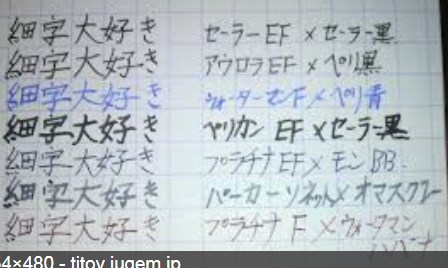 細字大好き セーラーEF×セーラー黒
細字大好き アウロラEF×ペリ黒
細字大好き ウォーターマンF×ペリ青
細字大好き ペリカン EF×セーラー黒
細字大好き プラチナEF×モンBB.
細字大好き パーカーソネット×オマスグレー
細字大好き プラチナ F×ウォーターマン
ハバナ
4×480 - titoy.jugem.jp